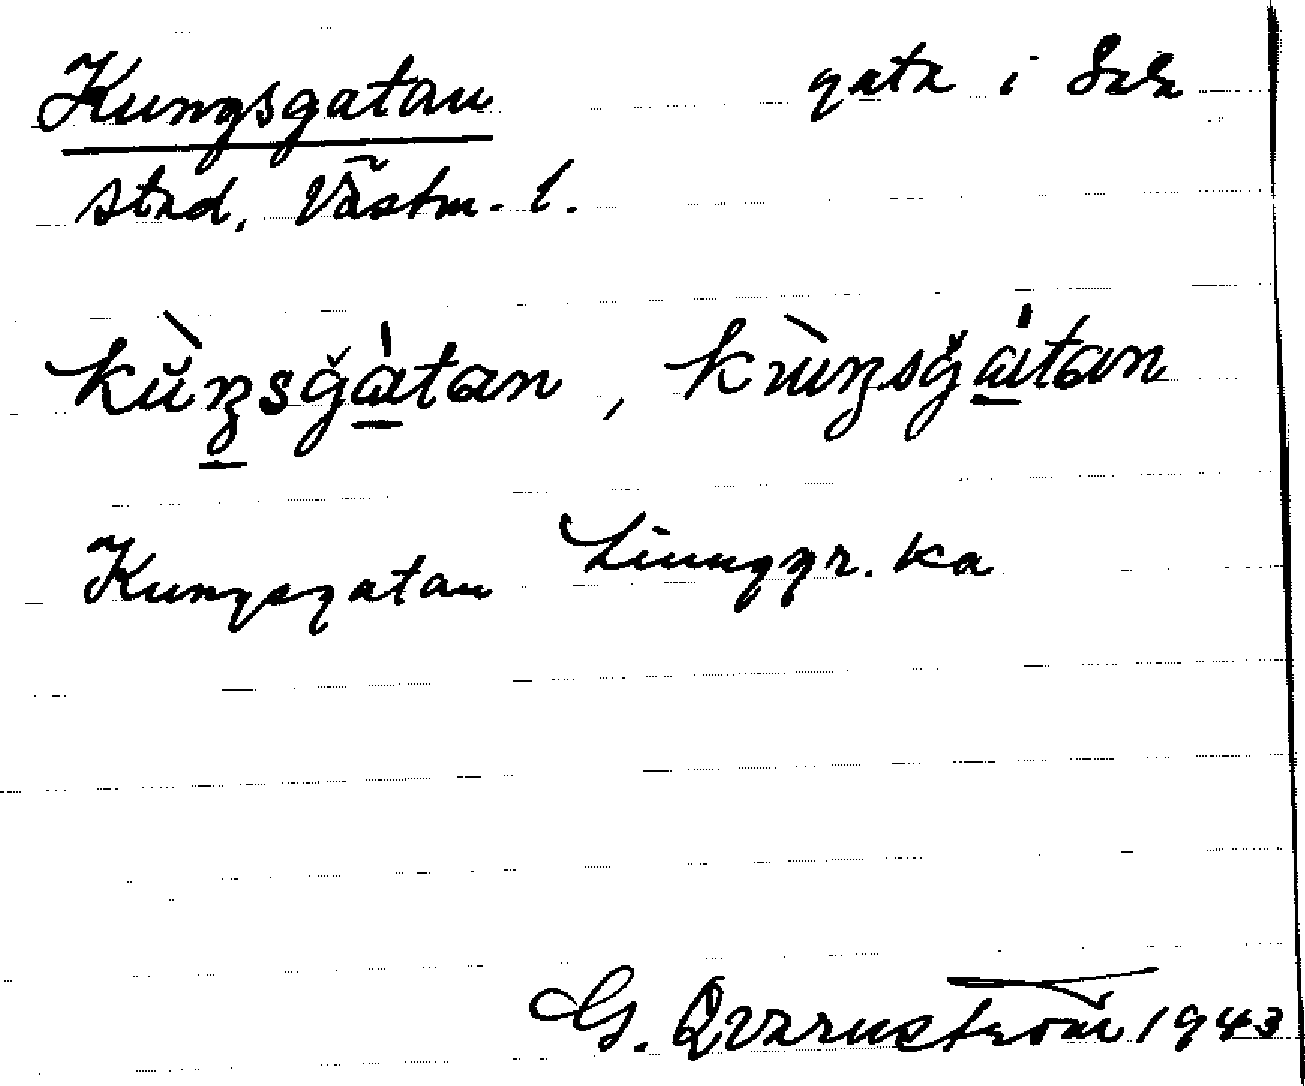 Kungsgatan gata i Sala
stad, Västm. l.
kùŋsgatan, kùŋsgatan
Kungsgatan Linnggr. ka
G. Qvarnström 1943